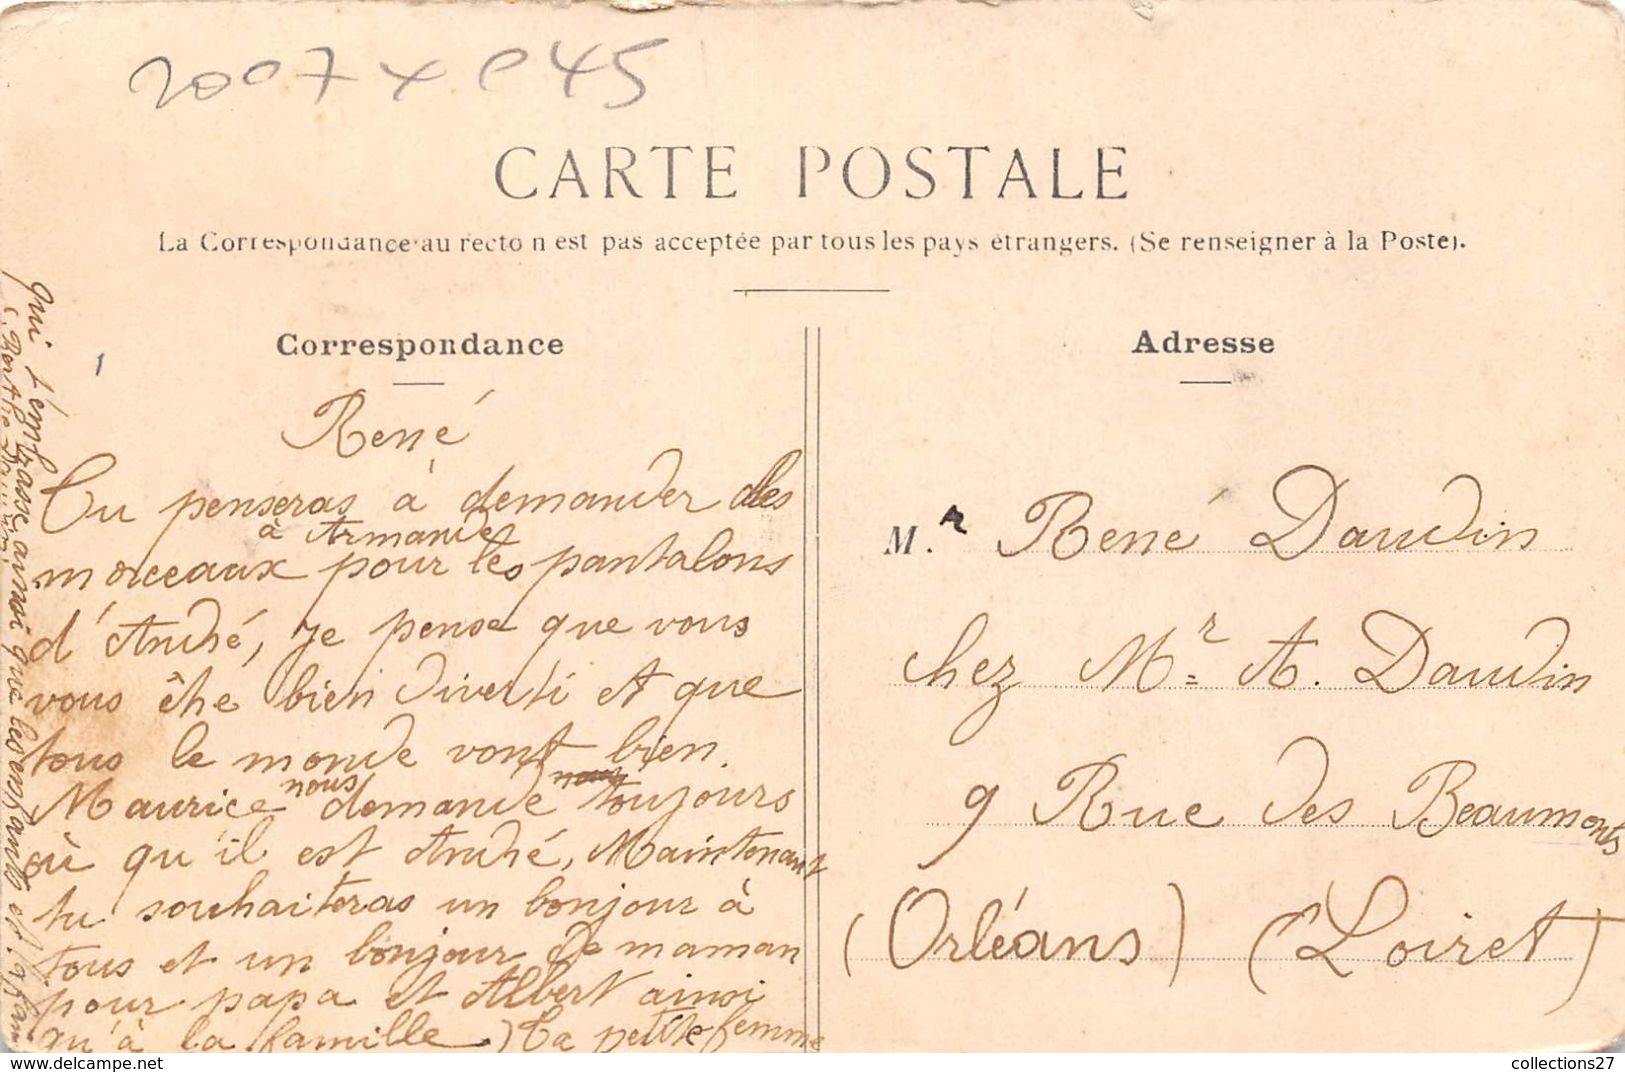 2007 x 045
CARTE POSTALE
La Correspondance au recto n'est pas acceptée par tous les pays étrangers. (Se renseigner à la Poste).
Correspondance
René
Tu penseras à demander des
à Armande
morceaux pour les pantalons
d'André, je pense que vous
vous ête bien diverti et que
tous le monde vont bien.
Maurice nous demande toujours
où qu'il est André, Maintenant
tu souhaiteras un bonjour à
tous et un bonjour de maman
pour papa et Albert ainsi
qu'à la famille. Ta petite femme
qui t'embrasse ainsi que les enfants et
Adresse
M.r René Daudin
chez Mr A. Daudin
9 Rue des Beaumonts
(Orléans) (Loiret)
https://www.delcampe.net
collections27